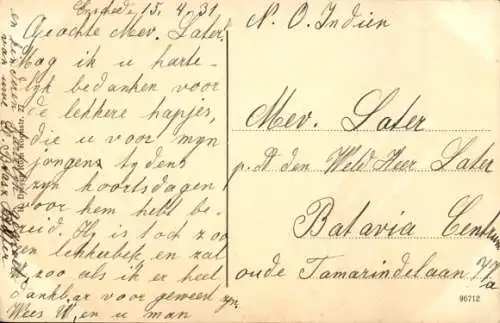 Enschede 15. 4. 31
Geachte Mev. Later.
Mag ik u harte-
lijk bedanken voor
de lekkere hapjes,
die u voor mijn
jongens tydens
zyn koortsdagen
voor hem hebt be-
reid. Hy is toch zoo
en lekkerbek en zal
zoo als ik er heel
dankbaar voor geweest zyn
Wees U, en u man
N. O. Indien
Mev. Later
p. A den Weld Heer Later
Batavia Centrum
oude Tamarindelaan 77
a
96712